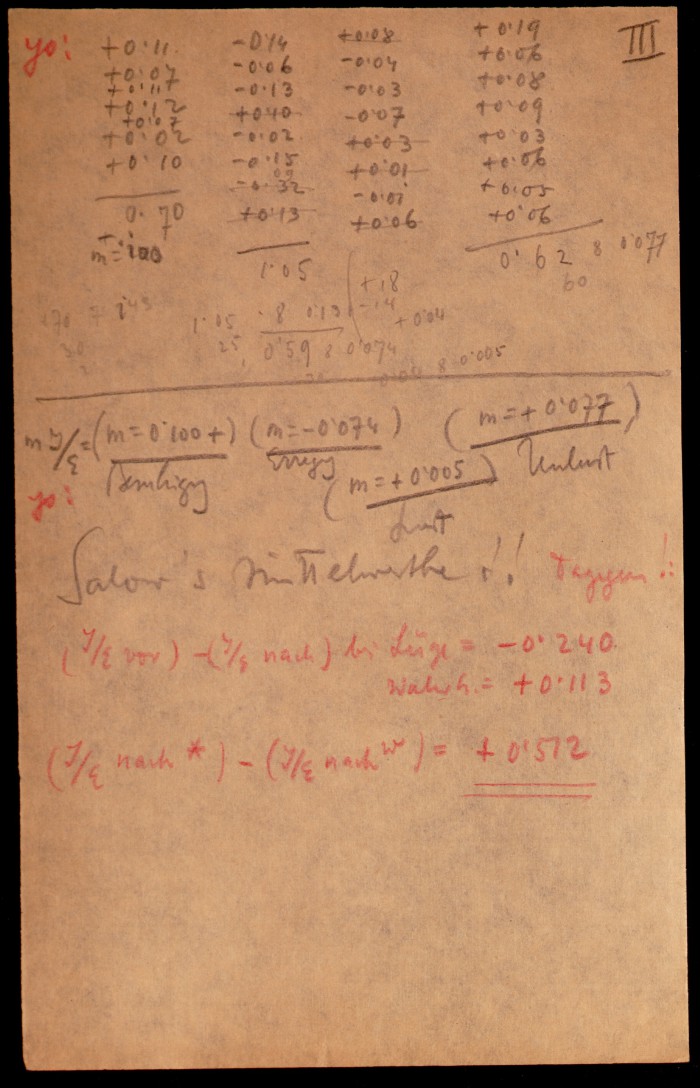 yo: III
+0·11 -0·14 +0·08 +0·19
+0·07 -0·06 -0·04 +0·06
+0·11 -0·13 -0·03 +0·08
+0·12 +0·40 -0·07 +0·09
+0·07
+0·02 -0·02 +0·03 +0·03
+0·10 -0·15 +0·01 +0·06
09
-0·32 -0·01 +0·05
0·70 +0·13 +0·06 +0·06
m=
1·05 0·62 8 0·077
60
+18
-14
+0·04
1·05 · 8 0·13
25, 0·59 8 0·074
8 0·005
m J/ε = (m=0·100+) (m=-0·074) (m=+0·077)
Beruhigg Erregg Unlust
yo: (m=+0·005)
Lust
Salow's Mittelwerthe !! Dagegen !:
(J/ε vor) - (J/ε nach) bei Lüge = -0·240
Wahrh. = +0·113
(J/ε nach *) - (J/ε nach w) = +0·512